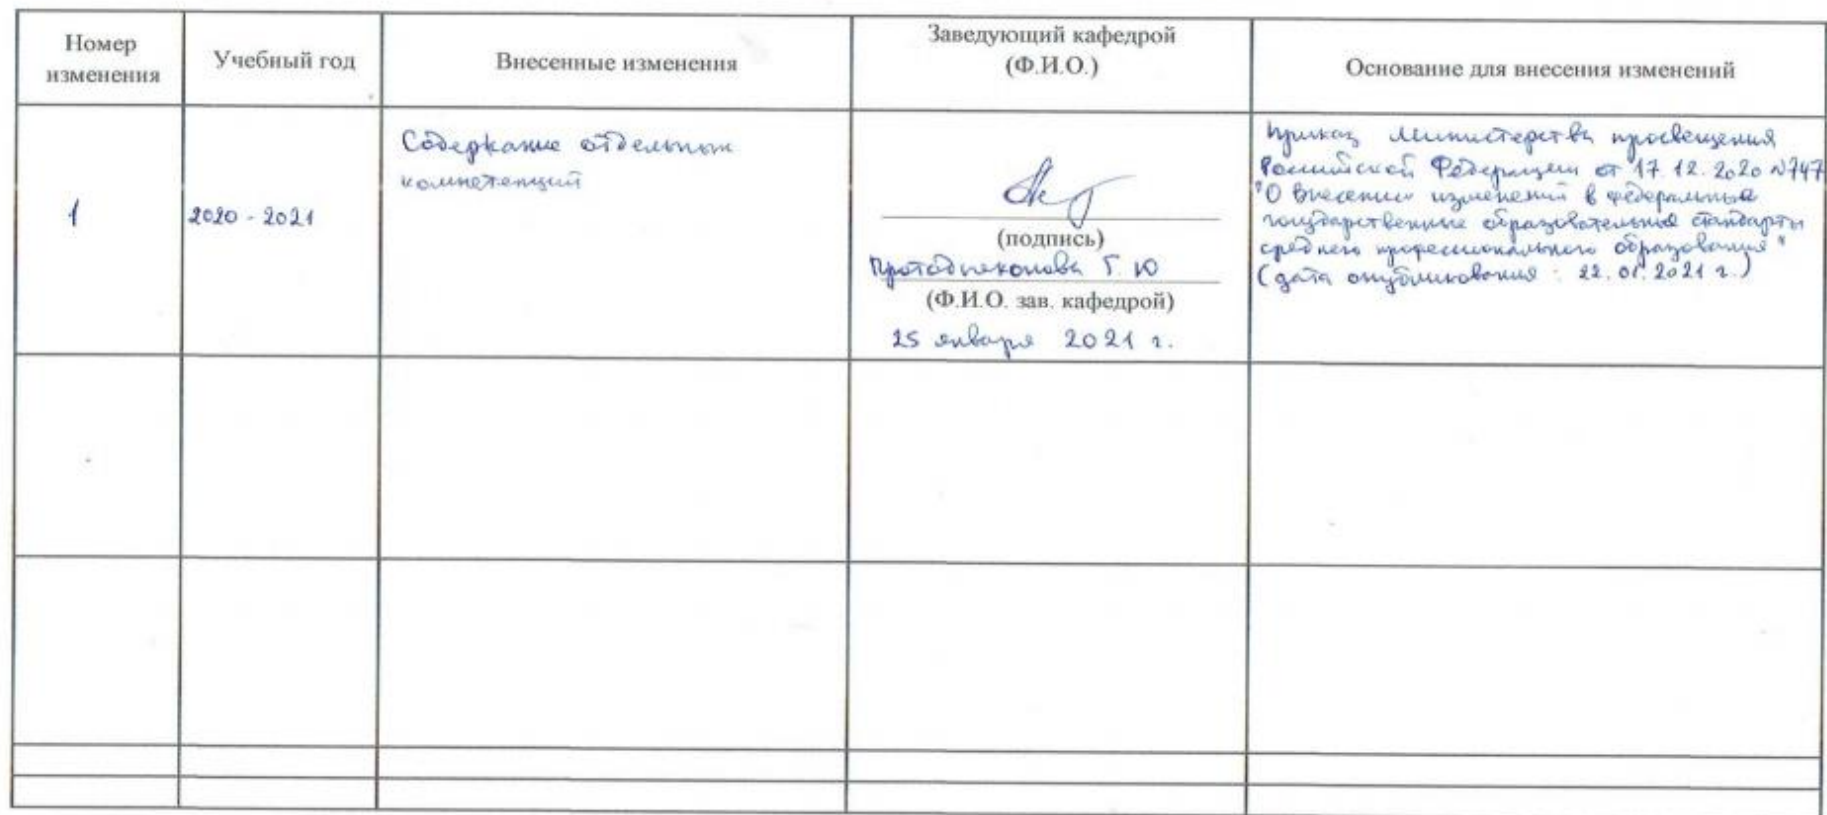 Номер
изменения
Учебный год
Внесенные изменения
Заведующий кафедрой
(Ф.И.О.)
Основание для внесения изменений
1
2020 - 2021
Содержание отдельных
компетенций
(подпись)
Протодьяконова Г. Ю
(Ф.И.О. зав. кафедрой)
25 января 2021 г.
Приказ Министерства просвещения
Российской Федерации от 17.12.2020 №747
"О внесении изменений в федеральные
государственные образовательные стандарты
среднего профессионального образования"
(дата опубликования: 22.01.2021 г.)